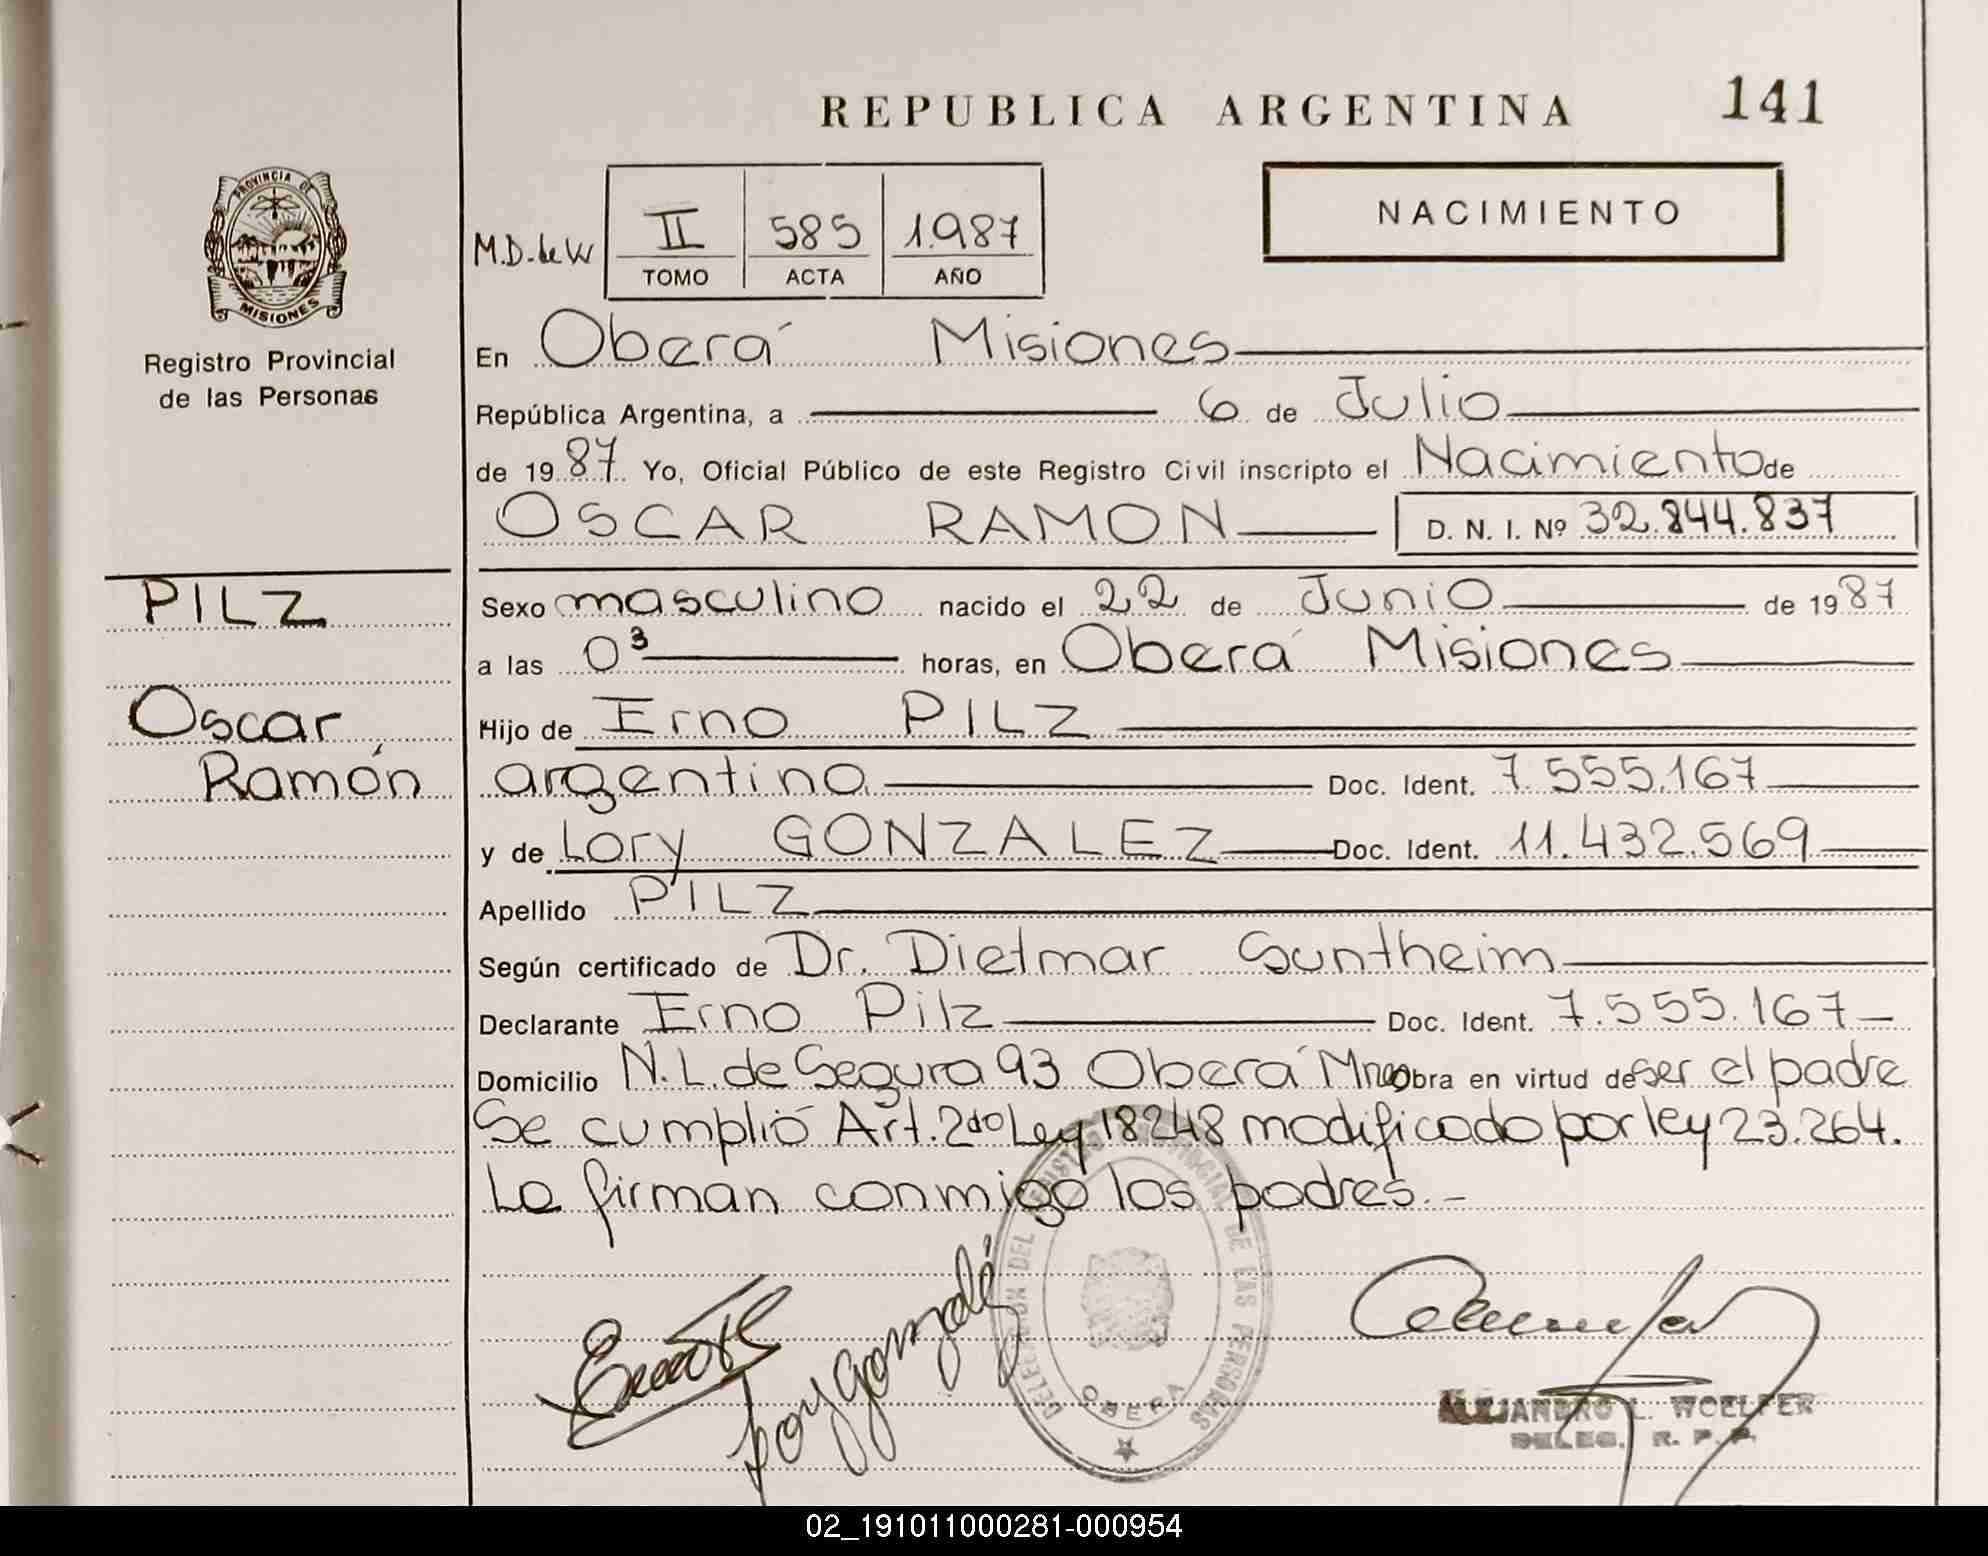 REPUBLICA ARGENTINA 141
PROVINCIA DE
MISIONES
Registro Provincial
de las Personas
M.D. de W
II 585 1.987
TOMO ACTA AÑO
NACIMIENTO
En Oberá Misiones
República Argentina, a 6 de Julio
de 19 87 Yo, Oficial Público de este Registro Civil inscripto el Nacimiento de
OSCAR RAMON D. N. I. Nº 32.844.837
PILZ
Oscar
Ramón
Sexo masculino nacido el 22 de Junio de 19 87
a las 0³ horas, en Oberá Misiones
Hijo de Erno PILZ
argentino Doc. Ident. 7.555.167
y de Lory GONZALEZ Doc. Ident. 11.432.569
Apellido PILZ
Según certificado de Dr. Dietmar Suntheim
Declarante Erno Pilz Doc. Ident. 7.555.167
Domicilio N.L. de Segura 93 Oberá Mnes Obra en virtud de ser el padre
Se cumplió Art. 2do Ley 18248 modificado por ley 23.264.
La firman conmigo los padres.-
DELEGACION DEL REGISTRO PROVINCIAL DE LAS PERSONAS
OBERA
Lory Gonzalé
ALEJANDRO L. WOELFER
DELEG. R. P. P.
02_191011000281-000954